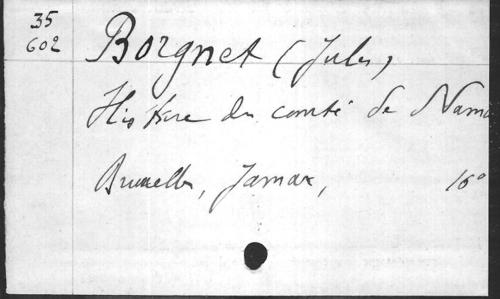 35
602
Borgnet (Jules)
Histoire du comté de Namu
Bruxelles, Jamar, 16°